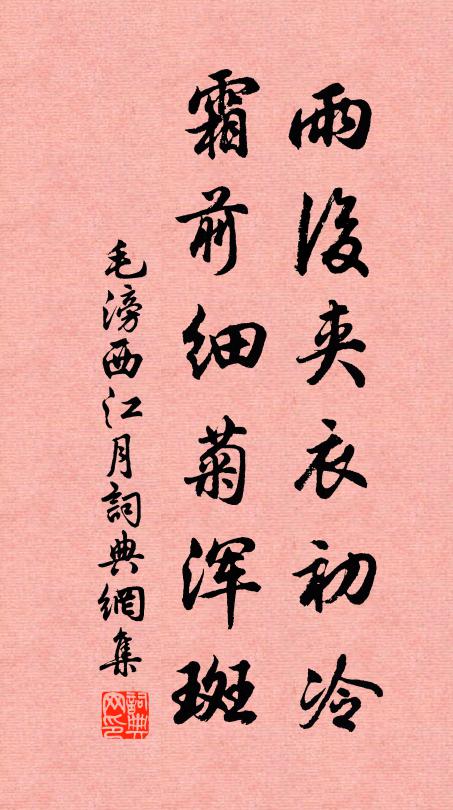 雨後夹衣初冷
霜前细菊浑斑
毛滂西江月詞典網集
詞典网印